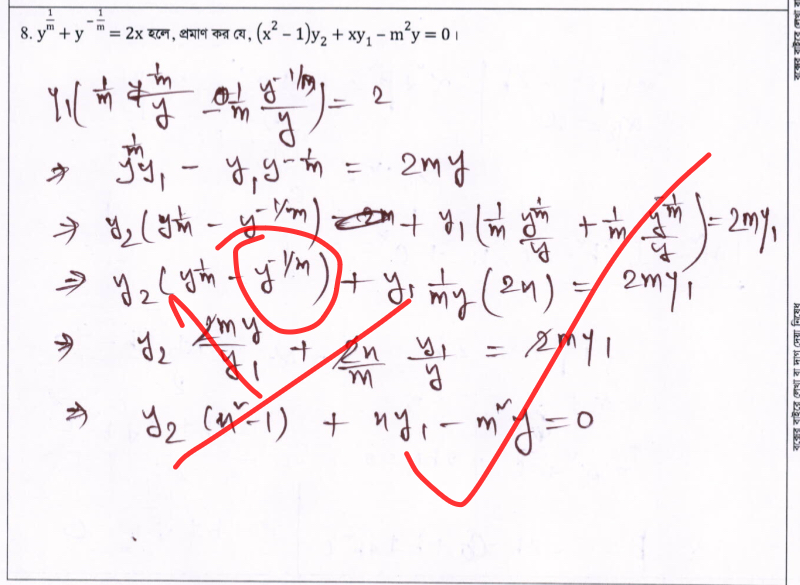 8. y^{1/m} + y^{-1/m} = 2x হলে, প্রমাণ কর যে, (x² − 1)y₂ + xy₁ − m²y = 0।
y₁( 1/m y^{1/m}/y − 1/m y^{-1/m}/y ) = 2
⇒ y^{1/m}y₁ − y₁y^{-1/m} = 2my
⇒ y₂(y^{1/m} − y^{-1/m}) + y₁( 1/m y^{1/m}/y + 1/m y^{-1/m}/y ) = 2my₁
⇒ y₂(y^{1/m} − y^{-1/m}) + y₁ 1/my (2x) = 2my₁
⇒ y₂ 2my/y₁ + 2x/m y₁/y = 2my₁
⇒ y₂ (x² − 1) + xy₁ − m²y = 0